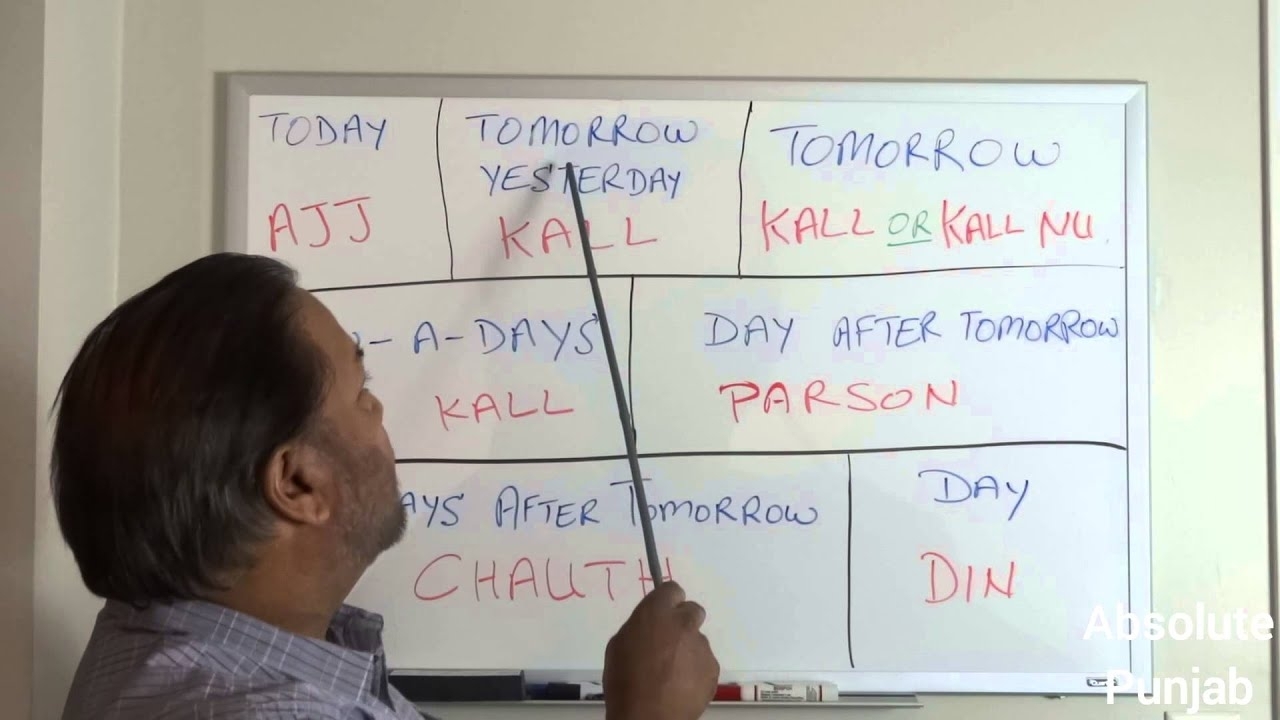 TODAY
AJJ
TOMORROW
YESTERDAY
KALL
TOMORROW
KALL OR KALL NU.
- A-DAYS
KALL
DAY AFTER TOMORROW
PARSON
AFTER TOMORROW
CHAUTH
DAY
DIN
Absolute
Punjab